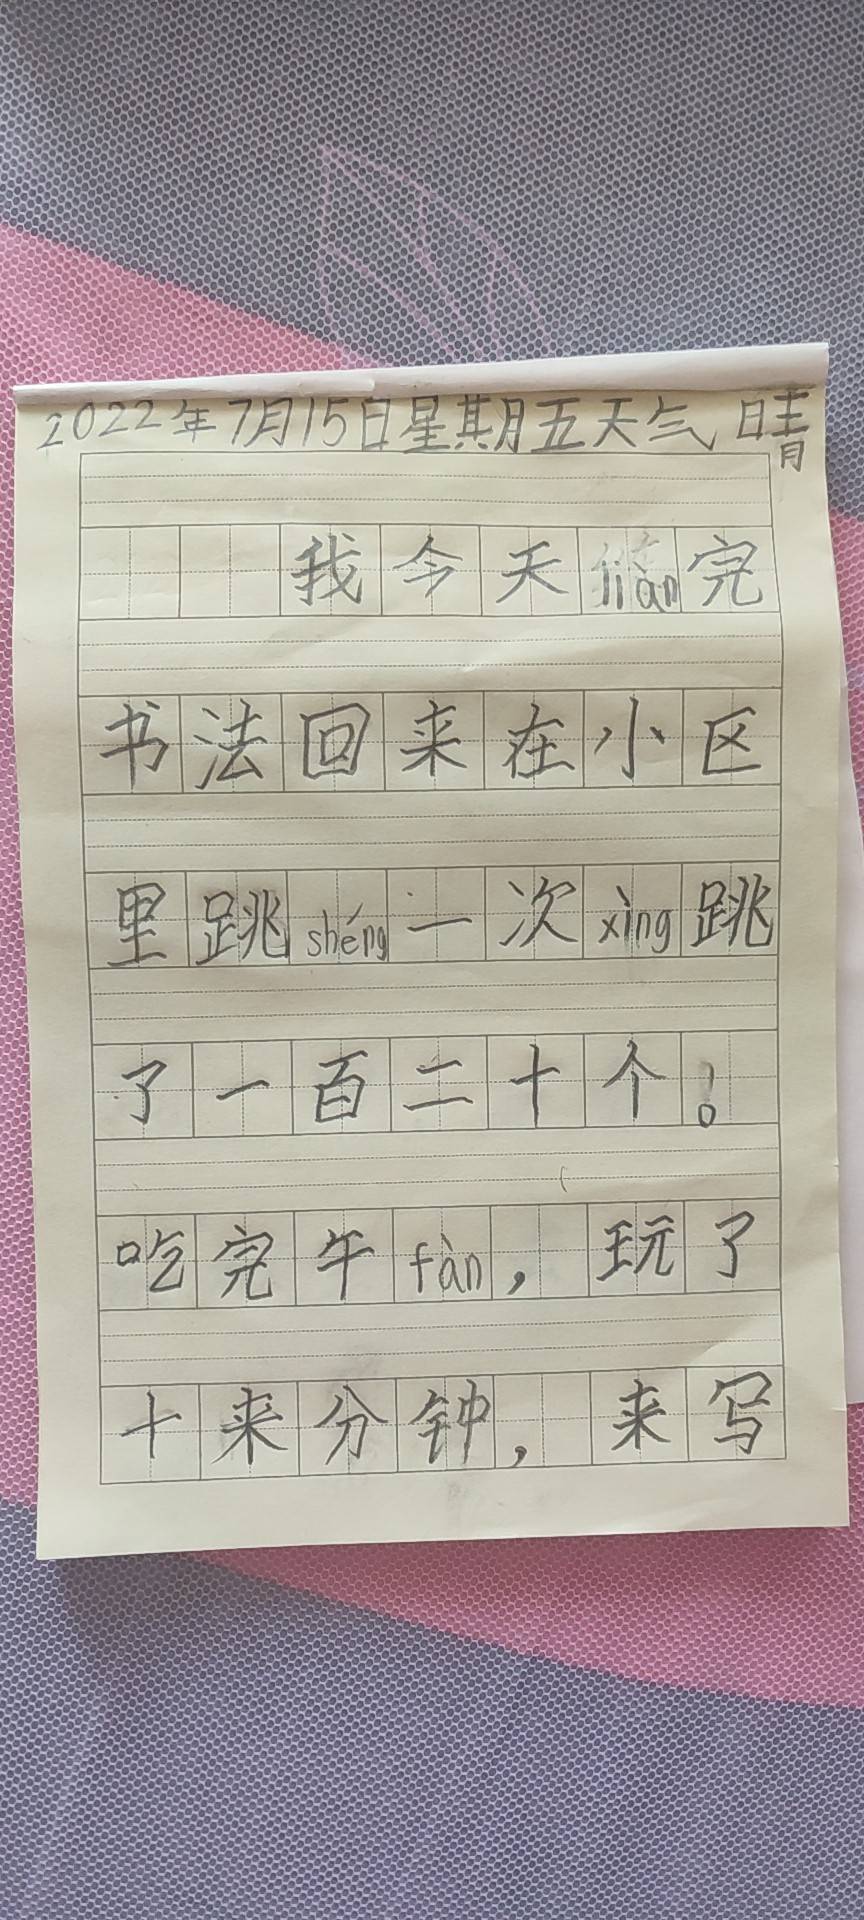 2022年7月15日星期五天气晴
我今天liàn完
书法回来在小区
里跳shéng一次xìng跳
了一百二十个!
吃完午fàn,玩了
十来分钟,来写